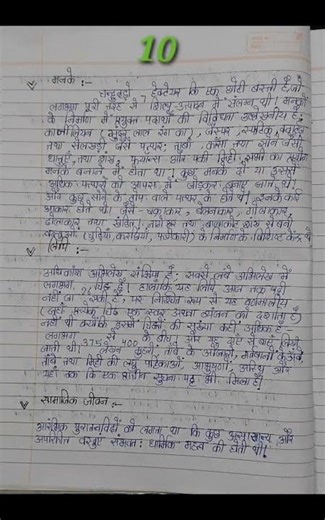 10
मनके :-
चन्हुदड़ो - हेक्टेयर कि एक छोटी बस्ती है जो
लगभग पूरी तरह से शिल्प उत्पादन में संलग्न थी। मनकों
के निर्माण में प्रयुक्त पदार्थो की विविधता उल्लेखनीय है:
कार्नीलियन (सुंदर लाल रंग का), जैस्पर, स्फटिक, क्वार्ट्ज
तथा सेलखड़ी जैसे पत्थर; तांबा, कांसा तथा सोने जैसी
धातुएँ तथा शंख, फयॉन्स और पकी मिट्टी, सभी का प्रयोग
मनके बनाने में होता था। कुछ मनके दो या इससे
अधिक पत्थरों को आपस में जोड़कर बनाए जाते थे।
और कुछ सोने के टोप वाले पत्थर के होते थे। इनके कई
आकार होते थे। जैसे - चक्राकार, बेलनाकार, गोलाकार,
ढोलाकार तथा खंडित। नागेश्वर तथा बालाकोट शंख से बनी
वस्तुओं (चूड़ियाँ, करछियाँ, पच्चीकारी) के निर्माण के विशिष्ट केंद्र थे
लिपि :-
अधिकांश अभिलेख संक्षिप्त हैं; सबसे लंबे अभिलेख में
लगभग 26 चिह्न हैं। हालांकि यह लिपि आज तक पढ़ी
नहीं जा सकी है, पर निश्चित रूप से यह वर्णमालीय
(जहाँ प्रत्येक चिह्न एक स्वर अथवा व्यंजन को दर्शाता है)
नहीं थी क्योंकि इसमें चिह्नों की संख्या कहीं अधिक है -
लगभग 375 से 400 के बीच। और यह दाईं से बाईं लिखी
जाती थी। लेखन मुहरों, तांबे के औजारों, मर्तबानों के अंवठ,
तांबे तथा मिट्टी की लघु पट्टिकाओं, आभूषणों, अस्थि और
यहाँ तक कि एक प्राचीन सूचना पट्ट भी मिला है।
सामाजिक जीवन :-
आरंभिक पुरातत्वविदों को लगता था कि कुछ असामान्य और
अपरिचित वस्तुएं संभवत: धार्मिक महत्व की होती थी।